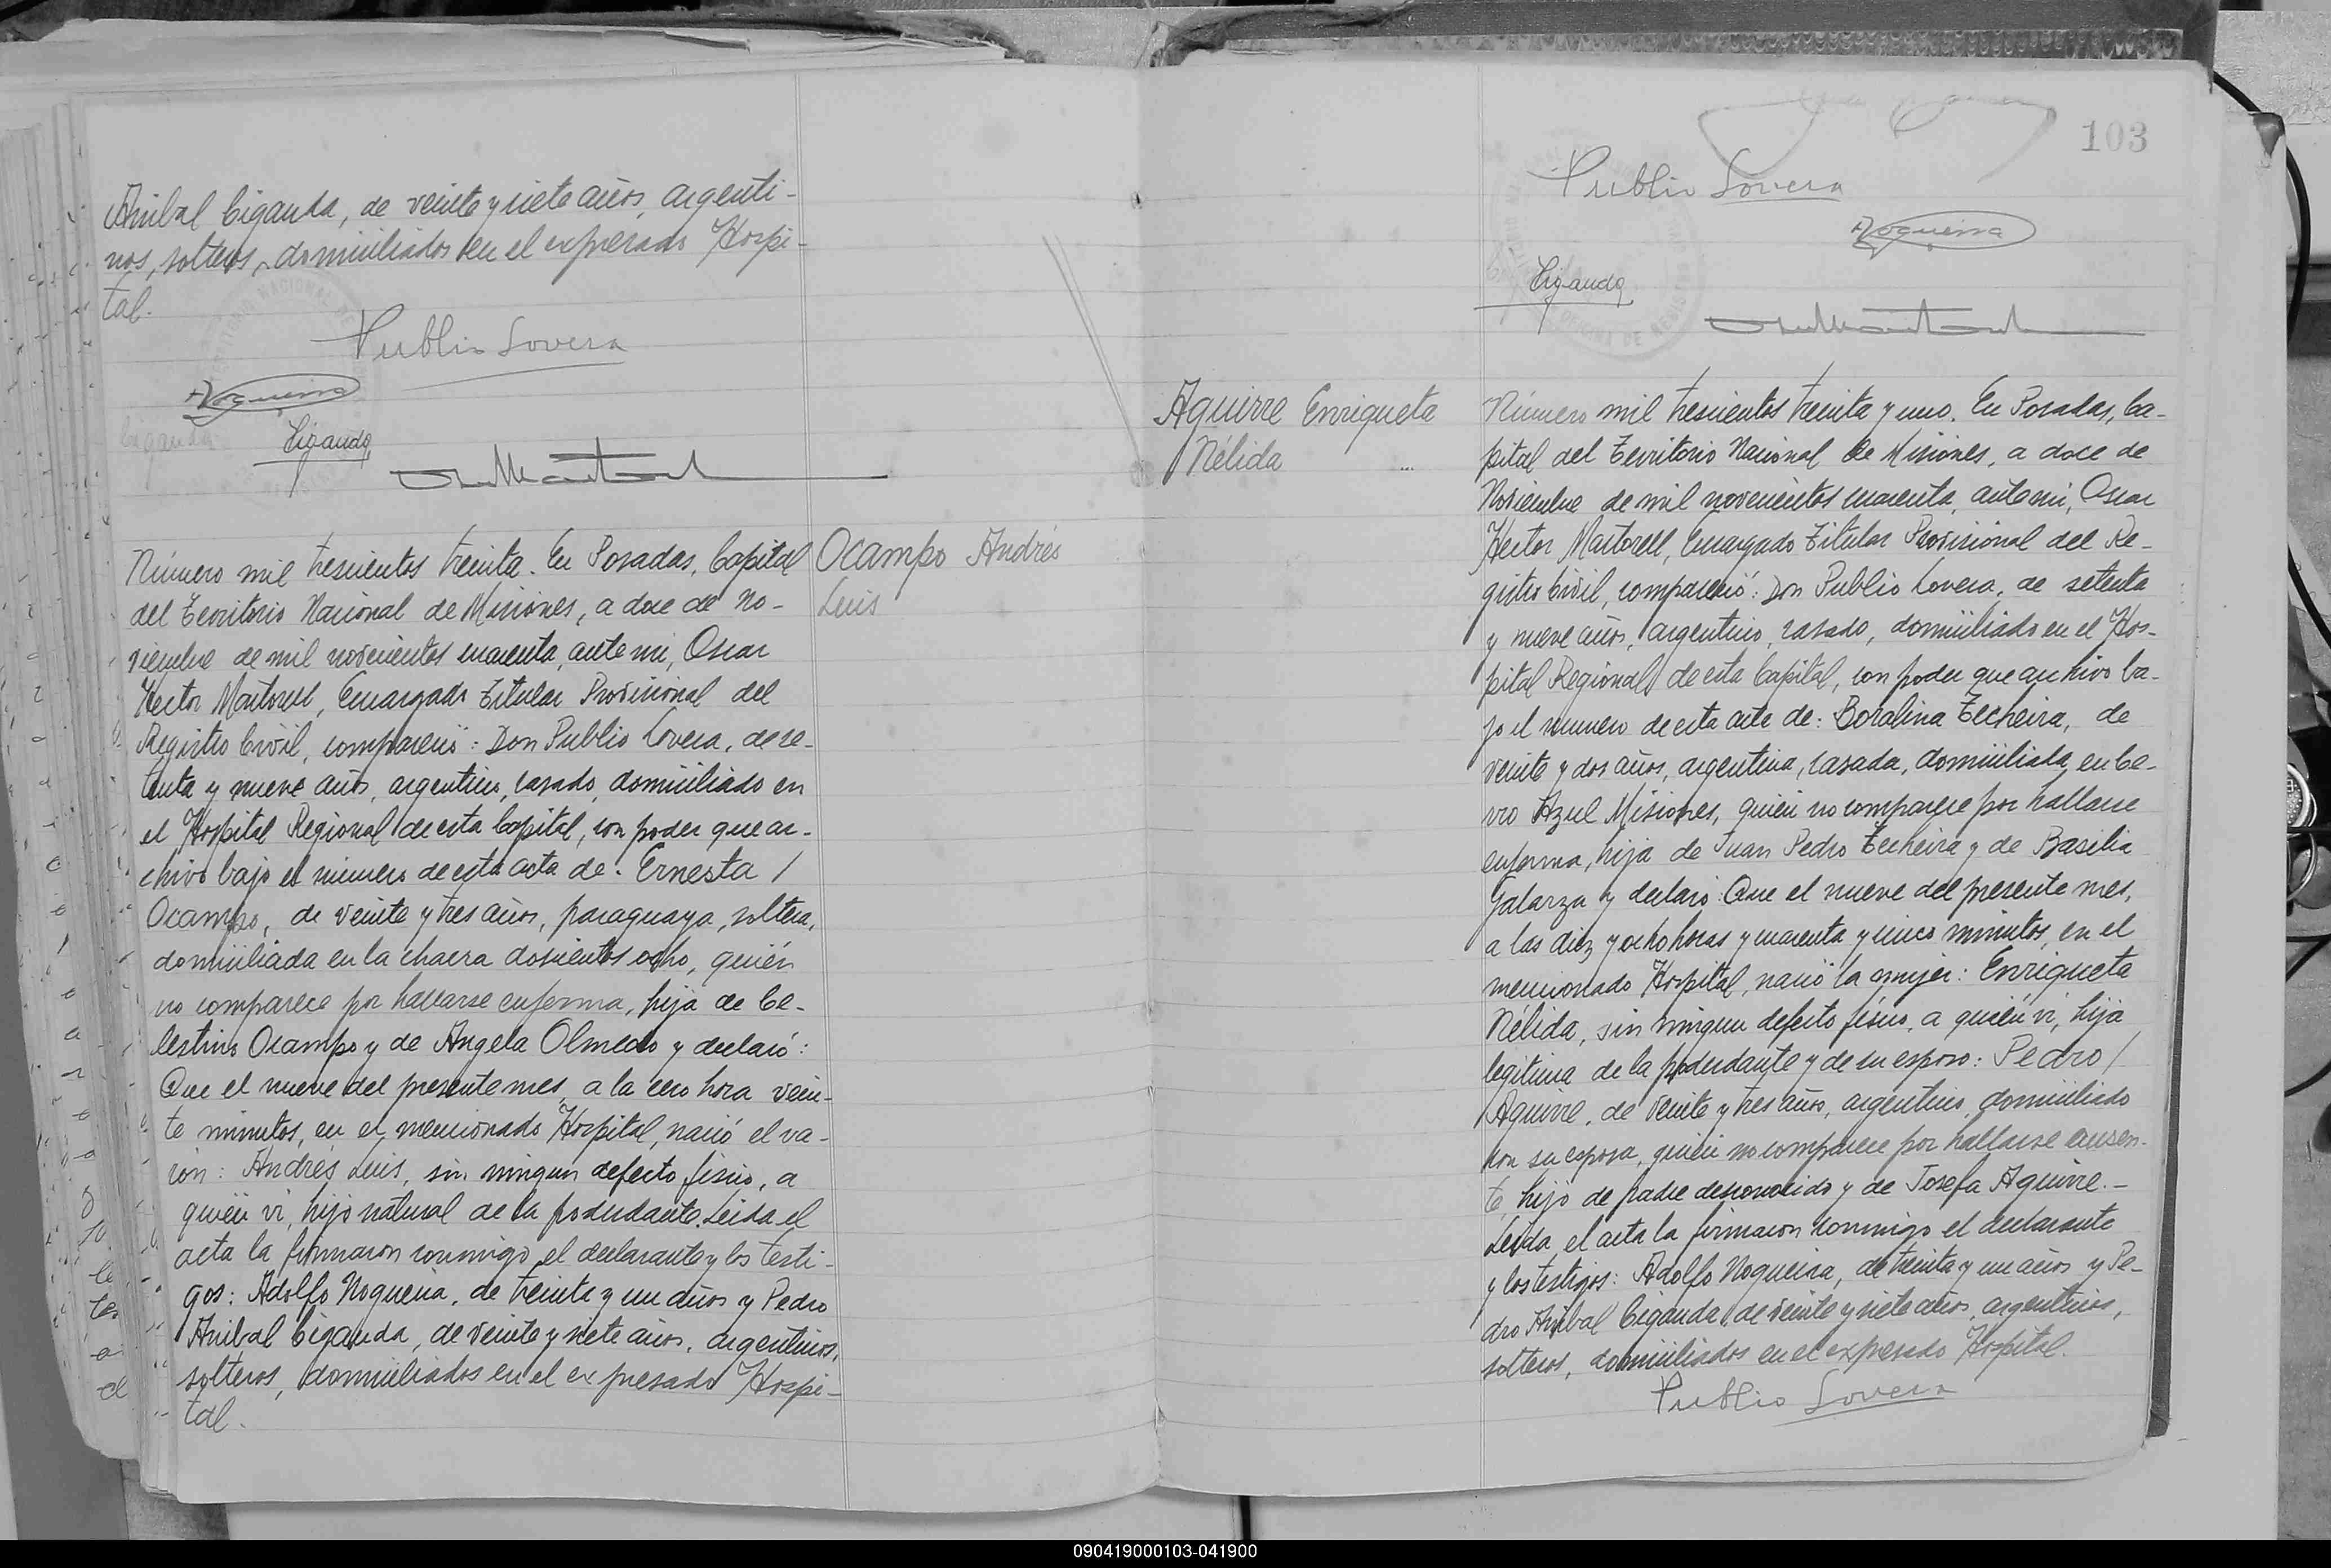 Anibal Ciganda, de veinte y siete años, argenti-
nos, solteros, domiciliados en el expresado Hospi-
tal.
Publio Lovera
ANogueira
Ciganda
Número mil trescientos treinta. En Posadas, Capital
del Territorio Nacional de Misiones, a doce de No-
viembre de mil novecientos cuarenta, ante mi, Oscar
Hector Martorell, Encargado Titular Provisional del
Registro Civil, compareció: Don Publio Lovera, de se-
tenta y nueve años, argentino, casado, domiciliado en
el Hospital Regional de esta Capital, con poder que ar-
chivo bajo el número de esta acta de: Ernesta /
Ocampo, de veinte y tres años, paraguaya, soltera,
domiciliada en la chacra doscientos ocho, quién
no comparece por hallarse enferma, hija de Ce-
lestino Ocampo y de Angela Olmedo y declaró:
Que el nueve del presente mes, a la cero hora vein-
te minutos, en el mencionado Hospital, nació el va-
rón: Andrés Luis, sin ningun defecto físico, a
quién vi, hijo natural de la poderdante. Leida el
acta la firmaron conmigo el declarante y los testi-
gos: Adolfo Nogueira, de treinta y un años y Pedro
Anibal Ciganda, de veinte y siete años, argentinos,
solteros, domiciliados en el expresado Hospi-
tal.
Ocampo Andrés
Luis
103
Publio Lovera
ANogueira
Ciganda
Aguirre Enriqueta
Nélida ...
Número mil trescientos treinta y uno. En Posadas, Ca-
pital del Territorio Nacional de Misiones, a doce de
Noviembre de mil novecientos cuarenta, ante mi, Oscar
Hector Martorell, Encargado Titular Provisional del Re-
gistro Civil, compareció: Don Publio Lovera, de setenta
y nueve años, argentino, casado, domiciliado en el Hos-
pital Regional de esta Capital, con poder que archivo ba-
jo el numero de esta acta de: Boralina Techeira, de
veinte y dos años, argentina, casada, domiciliada en Ce-
rro Azul Misiones, quién no comparece por hallarse
enferma, hija de Juan Pedro Techeira y de Basilia
Galarza y declaró: Que el nueve del presente mes,
a las diez y ocho horas y cuarenta y cinco minutos, en el
mencionado Hospital, nació la mujer: Enriqueta
Nélida, sin ningun defecto físico, a quién vi, hija
legitima de la poderdante y de su esposo: Pedro /
Aguirre, de veinte y tres años, argentino, domiciliado
con su esposa, quién no comparece por hallarse ausen-
te, hijo de padre desconocido y de Josefa Aguirre.-
Leida el acta la firmaron conmigo el declarante
y los testigos: Adolfo Nogueira, de treinta y un años y Pe-
dro Anibal Ciganda, de veinte y siete años, argentinos,
solteros, domiciliados en el expresado Hospital.
Publio Lovera
090419000103-041900